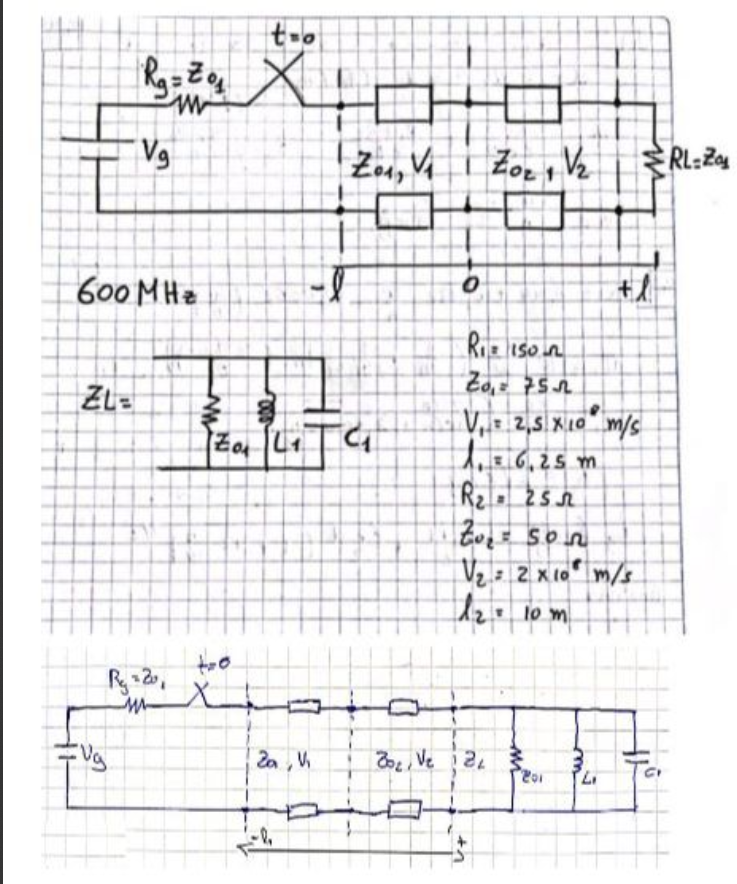 t=0
Rg=Z01
Vg
Z01, V1
Z02, V2
RL=Z01
600 MHz
-l
0
+l
ZL=
Z01
L1
C1
R1= 150 Ω
Z01= 75 Ω
V1= 2,5 x 10⁸ m/s
l1= 6,25 m
R2= 25 Ω
Z02= 50 Ω
V2= 2 x 10⁸ m/s
l2= 10 m
Rg=Z01
t=0
Vg
Z01, V1
Z02, V2
ZL
Z01
L1
C1
-l1
+